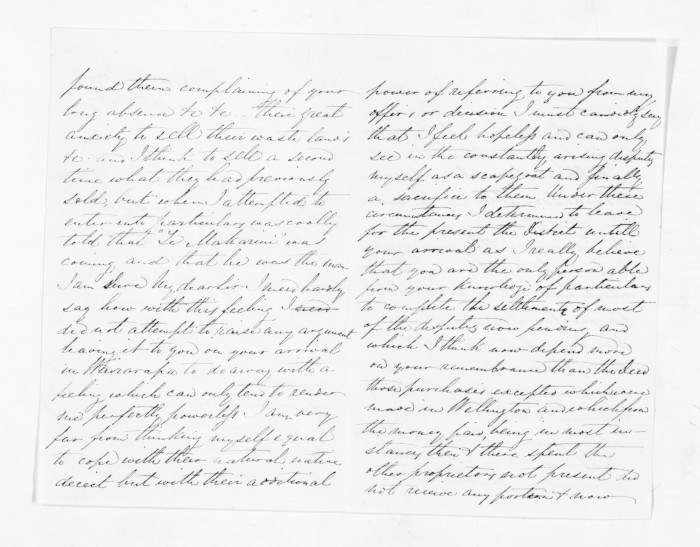 found them complaining of your
long absence &c &c - their great
anxiety to sell their waste lands
&c. and I think to sell a second
time what they had previously
sold, but when I attempted to
enter into particulars was coolly
told that "Te Makarini" was
coming and that he was the man
I am sure My dear Sir. I need hardly
say how with this feeling I
did not attempt to raise any argument
leaving it to you on your arrival
in Wairarapa to do away with a
feeling which can only tend to render
me perfectly powerless. I am very
far from thinking myself equal
to cope with their natural native
deceit but with their additional
power of referring to you from my
offer, or decision I must candidly say
that I feel hopeless and can only
see in the constantly arising disputes
myself as a scapegoat and finally
a sacrifice to them. Under these
circumstances I determined to leave
for the present the Districts untill
your arrival as I really believe
that you are the only person able
from your knowlege of particulars
to complete the settlement of most
of the disputes now pending, and
which I think now depend more
on your remembrance than the Deed
those purchases excepted which were
made in Wellington and which from
the money paid being in most in-
stances then & there spent the
other proprietors not present did
not receive any portion & now